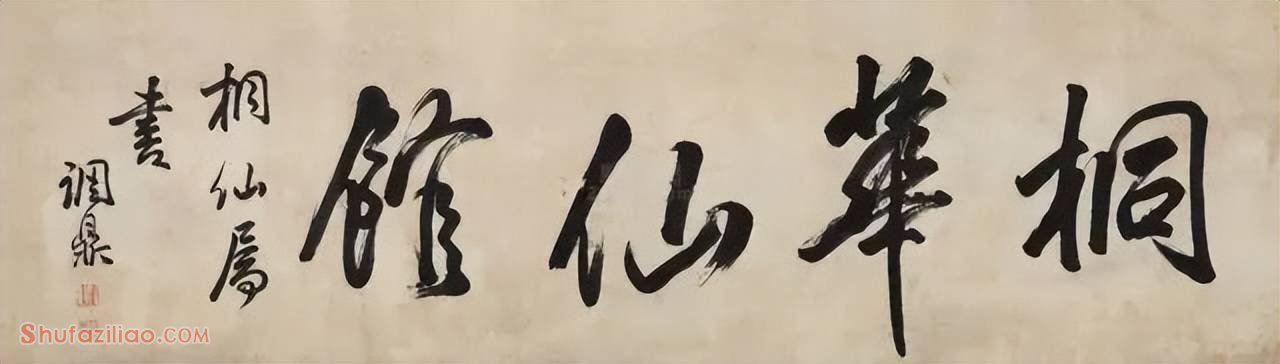 桐華仙館
桐仙屬
書
調鼎
Shufaziliao.COM